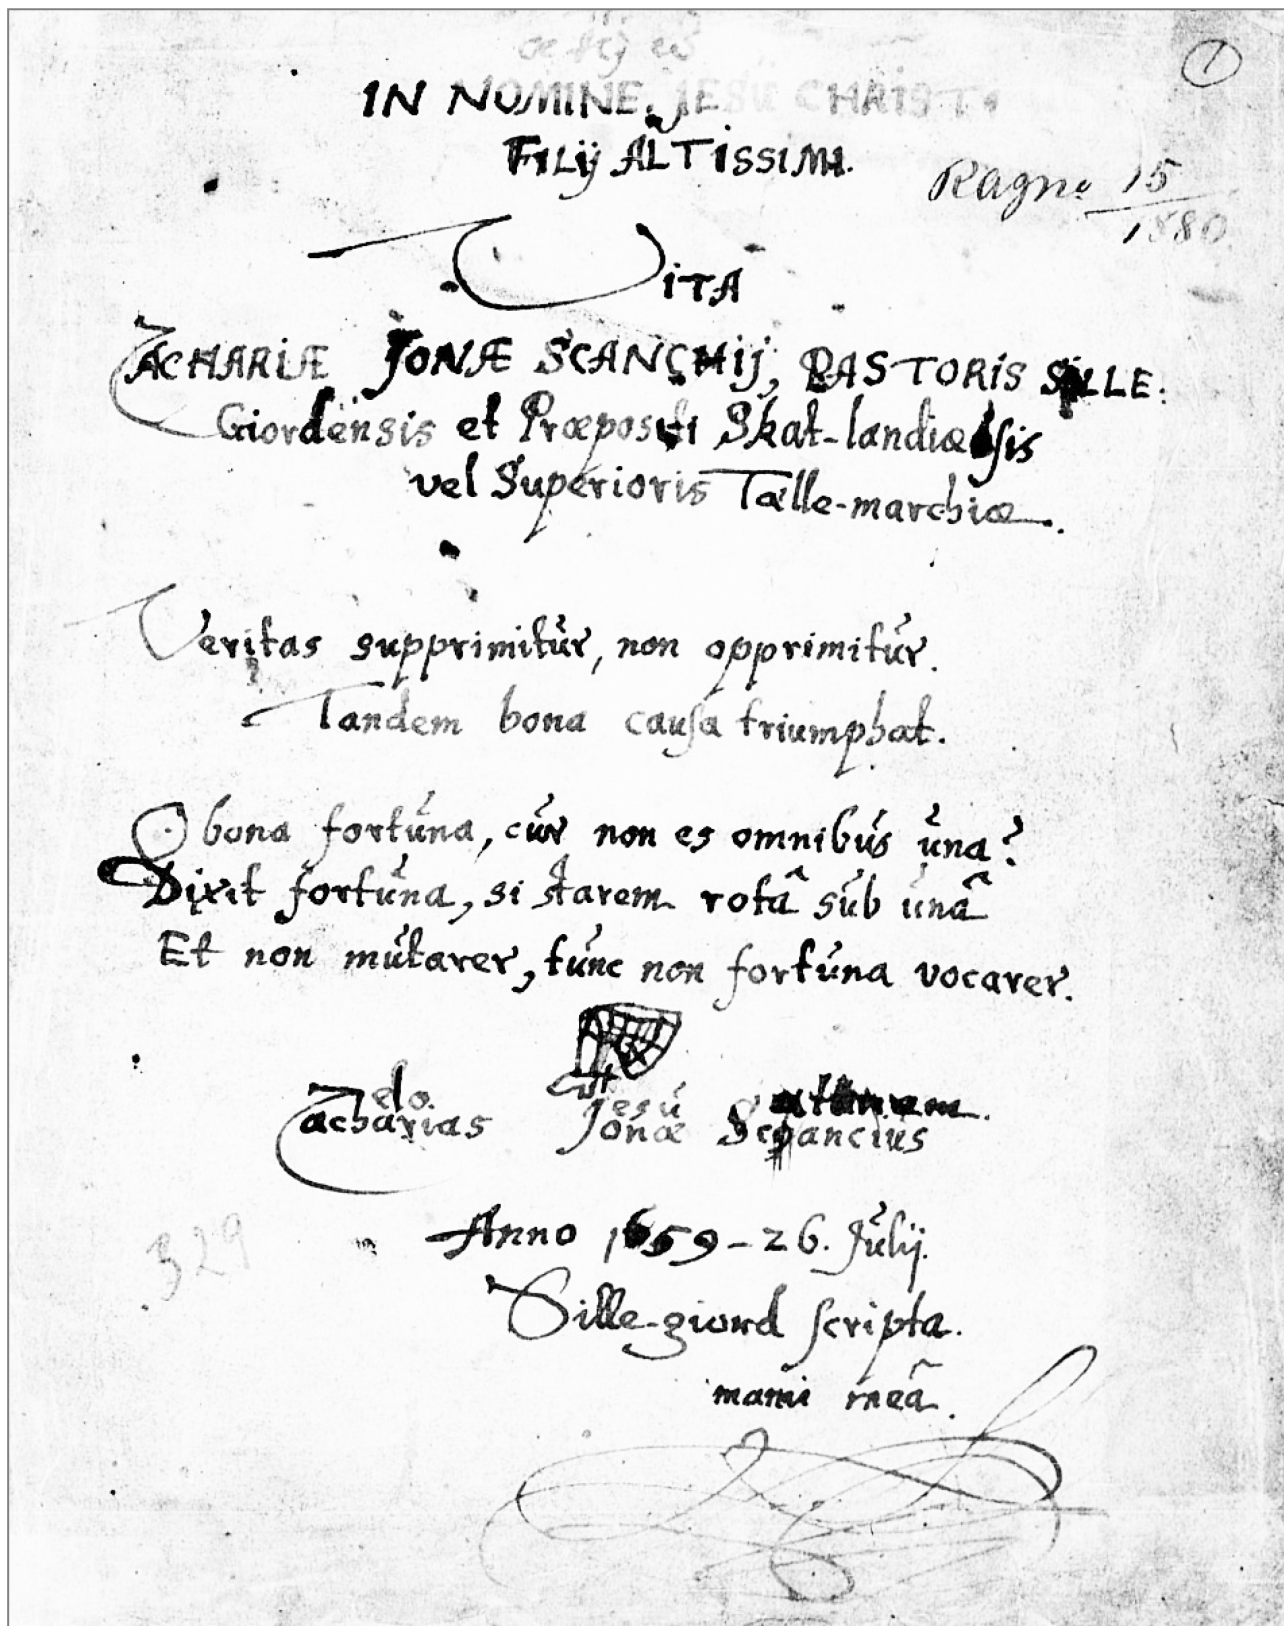 1
IN NOMINE JESU CHRISTI
FILIJ ALTISSIMI.
Ragn. 15
1880
VITA
ZACHARIÆ JONÆ SCANCHIJ, PASTORIS SILLE:
Giordensis et Præpositi Skat-landiæ
vel Superioris Tælle-marchiæ.
Veritas supprimitur, non opprimitur.
Tandem bona causa triumphat.
O bona fortuna, cur non es omnibus una?
Dixit fortuna, si starem rotâ sub unâ
Et non mutarer, tunc non fortuna vocarer.
Zelo Jesu
Zacharias Jonæ Scancius
Anno 1659 - 26. Julij.
Sille-giord scripta.
manu meâ.
329